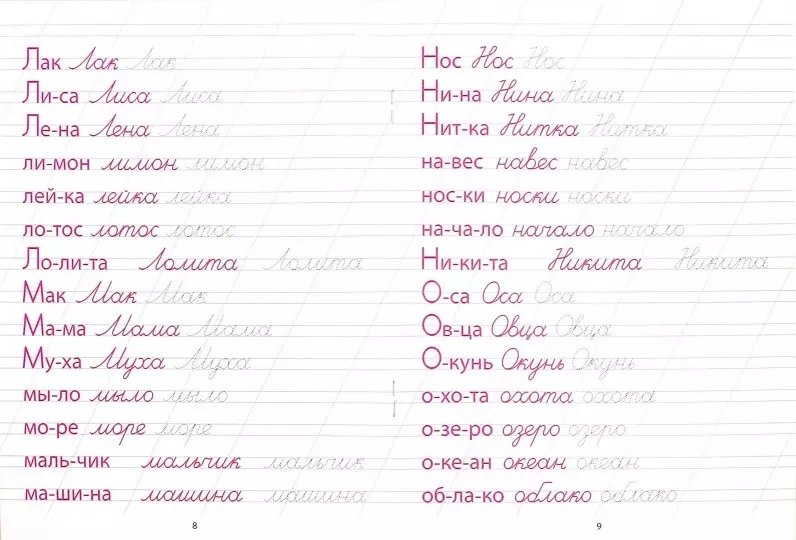 Лак Лак Лак
Ли-са Лиса Лиса
Ле-на Лена Лена
ли-мон лимон лимон
лей-ка лейка лейка
ло-тос лотос лотос
Ло-ли-та Лолита Лолита
Мак Мак Мак
Ма-ма Мама Мама
Му-ха Муха Муха
мы-ло мыло мыло
мо-ре море море
маль-чик мальчик мальчик
ма-ши-на машина машина
8
Нос Нос Нос
Ни-на Нина Нина
Нит-ка Нитка Нитка
на-вес навес навес
нос-ки носки носки
на-ча-ло начало начало
Ни-ки-та Никита Никита
О-са Оса Оса
Ов-ца Овца Овца
О-кунь Окунь Окунь
о-хо-та охота охота
о-зе-ро озеро озеро
о-ке-ан океан океан
об-ла-ко облако облако
9